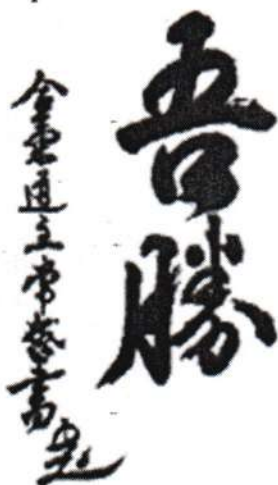 吾勝
合氣道主常盛書